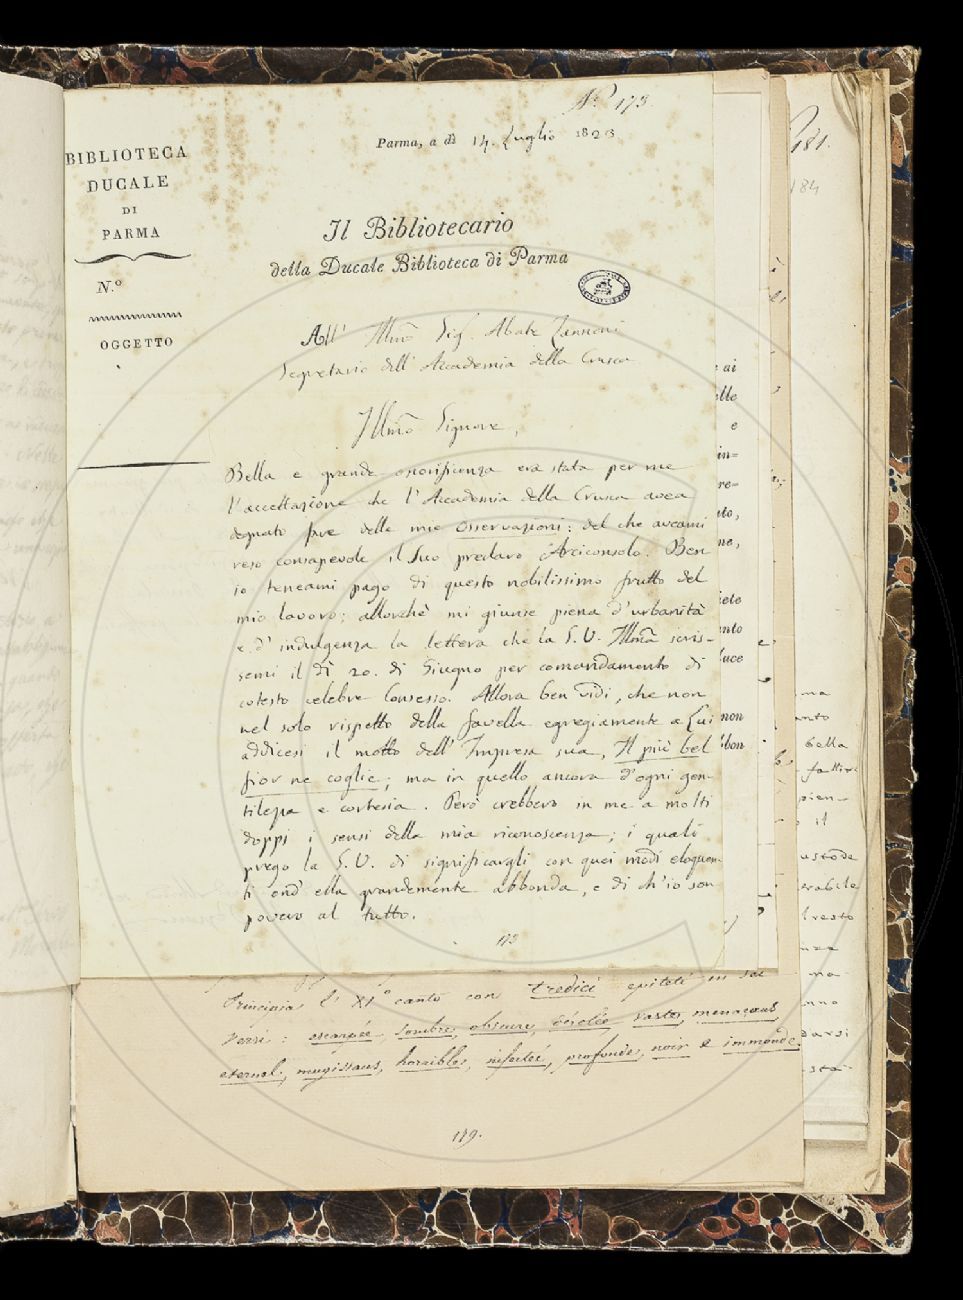 Nº. 173.
Parma, a dì 14. Luglio 1823
BIBLIOTECA
DUCALE
DI
PARMA
N.º
OGGETTO
Il Bibliotecario
della Ducale Biblioteca di Parma
All' Illmo Sig. Abate Zannoni
Segretario dell' Accademia della Crusca
Illmo Signore,
Bella e grande onorificenza era stata per me
l'accettazione che l'Accademia della Crusca avea
degnato fare delle mie Osservazioni; del che aveami
reso consapevole il Suo preclaro Arciconsolo. Ben
io teneami pago di questo nobilissimo frutto del
mio lavoro; allorchè mi giunse piena d'urbanità
e d'indulgenza la lettera che la S.V. Illma scris-
semi il dì 20. di Giugno per comandamento di
cotesto celebre Consesso. Allora ben vidi, che non
nel solo rispetto della favella egregiamente a Lui
addicesi il motto dell' Impresa sua, Il più bel
fior ne coglie; ma in quello ancora d'ogni gen-
tilezza e cortesia. Però crebbero in me a molti
doppi i sensi della mia riconoscenza; i quali
prego la S.V. di significargli con quei modi eloquen-
ti ond' ella grandemente abbonda, e di ch'io son
povero al tutto.
173
Principia l' XIº canto con tredici epiteti in sei
versi: escarpée, sombre, obscure, désolée, vastes, menaçans,
eternel, mugissans, horribles, infectée, profonde, noir e immonde.
119.
181.
184
ai
elle
e
in=
re=
to,
ne,
nto
luce
non
bon
ma
anto
bella
pien-
il
ustode
erabile
l resto
na-
anno
darsi